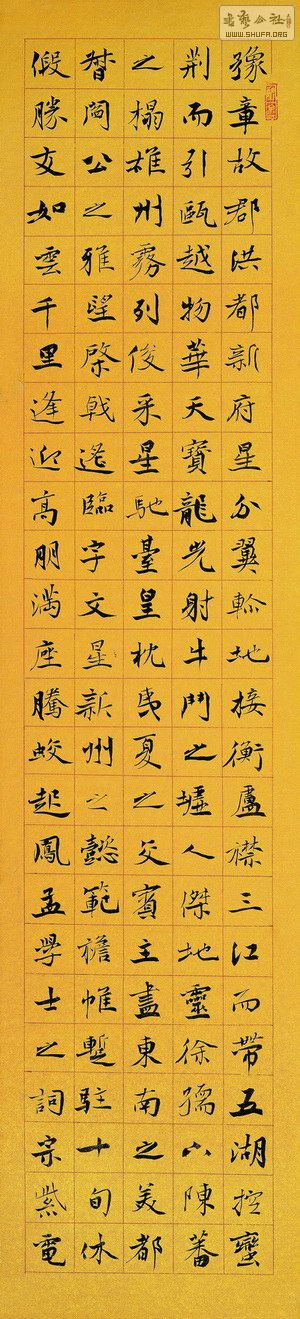 豫章故郡洪都新府星分翼軫地接衡廬襟三江而帶五湖控蠻
荆而引甌越物華天寶龍光射牛鬥之墟人傑地靈徐孺下陳蕃
之榻雄州霧列俊采星馳臺皇枕夷夏之交賓主盡東南之美都
督閻公之雅望棨戟遙臨宇文星新州之懿範襜帷暫駐十旬休
假勝友如雲千里逢迎高朋滿座騰蛟起鳳孟學士之詞宗紫電
WWW.SHUFA.ORG